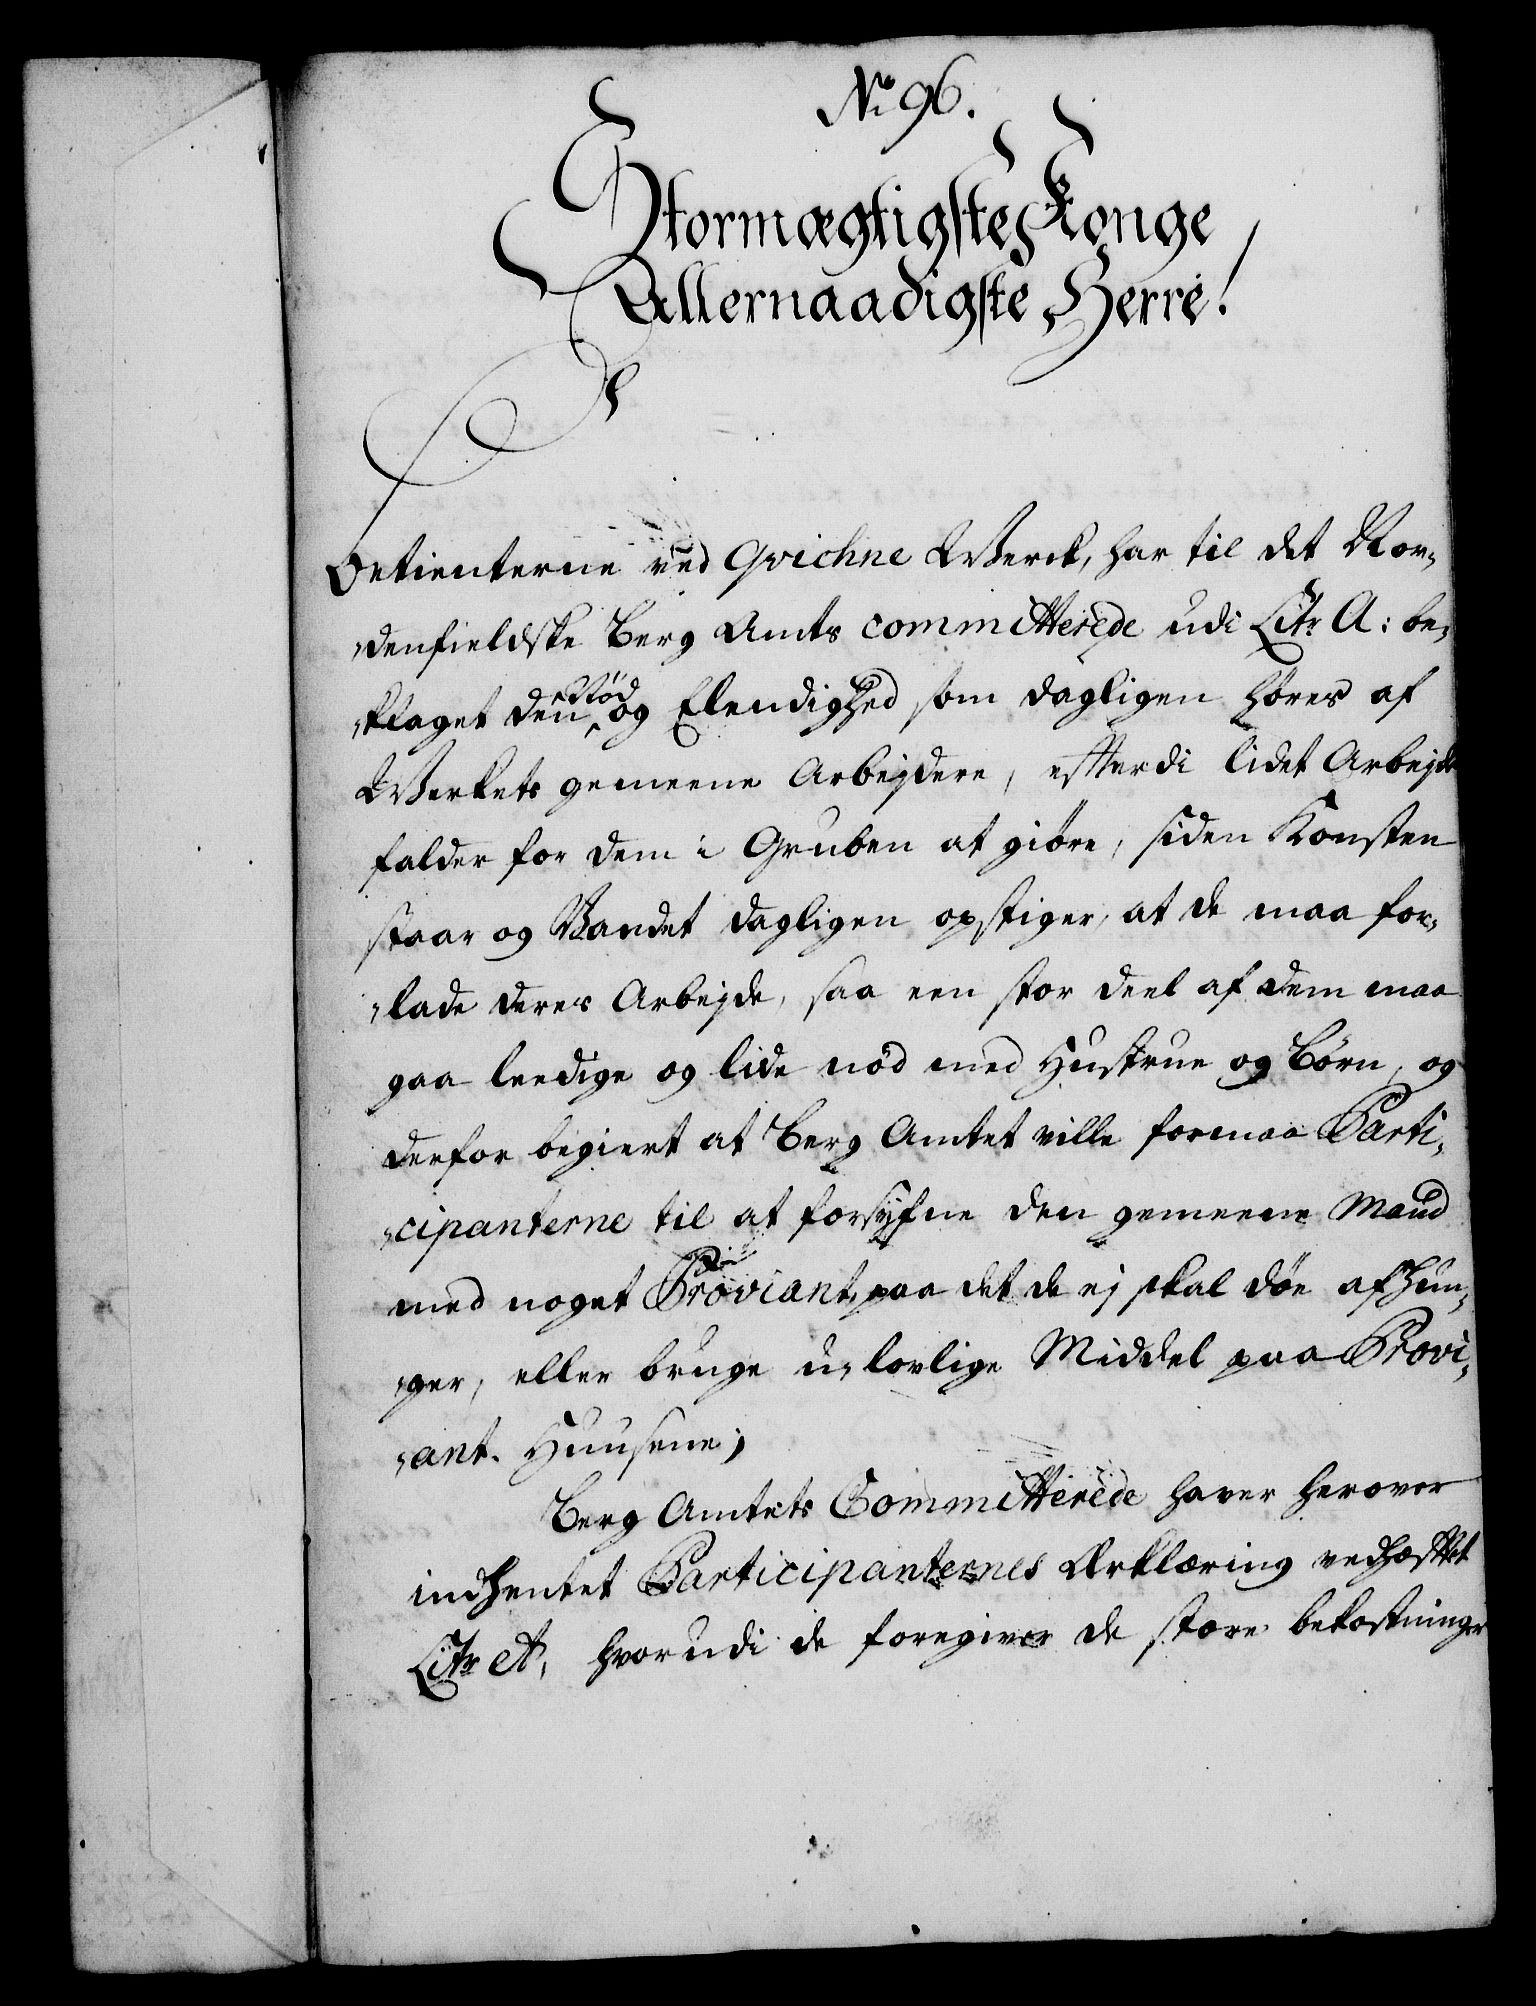 No 96.
Stormægtigste Konge
Allernaadigste Herre!
Betienterne ved Qvichne Werck, har til det Nor-
denfieldske Berg Amts committerede udi Litr A: be-
klaget den Nöd og Elendighed som dagligen høres af
Werkets gemeene Arbejdere, efterdi lidet Arbejde
falder for dem i Gruben at giöre, siden Konsten
staar og Vandet dagligen opstiger, at de maa for-
lade deres Arbejde, saa een stor deel af dem maa
gaa leedige og lide nöd med Hustrue og Börn, og
derfor begiert at Berg Amtet ville formaa Parti-
cipanterne til at forsyfne den gemeene Mand
med noget Proviant, paa det de ej skal döe af Hun-
ger, eller bruge u-lovlige Middel paa Provi-
ant-Huusene;
Berg Amtets Committerede haver herover
indhentet Participanternes Erklæring vedhæftet
Litr A, hvorudi de foregiver de store bekostninger